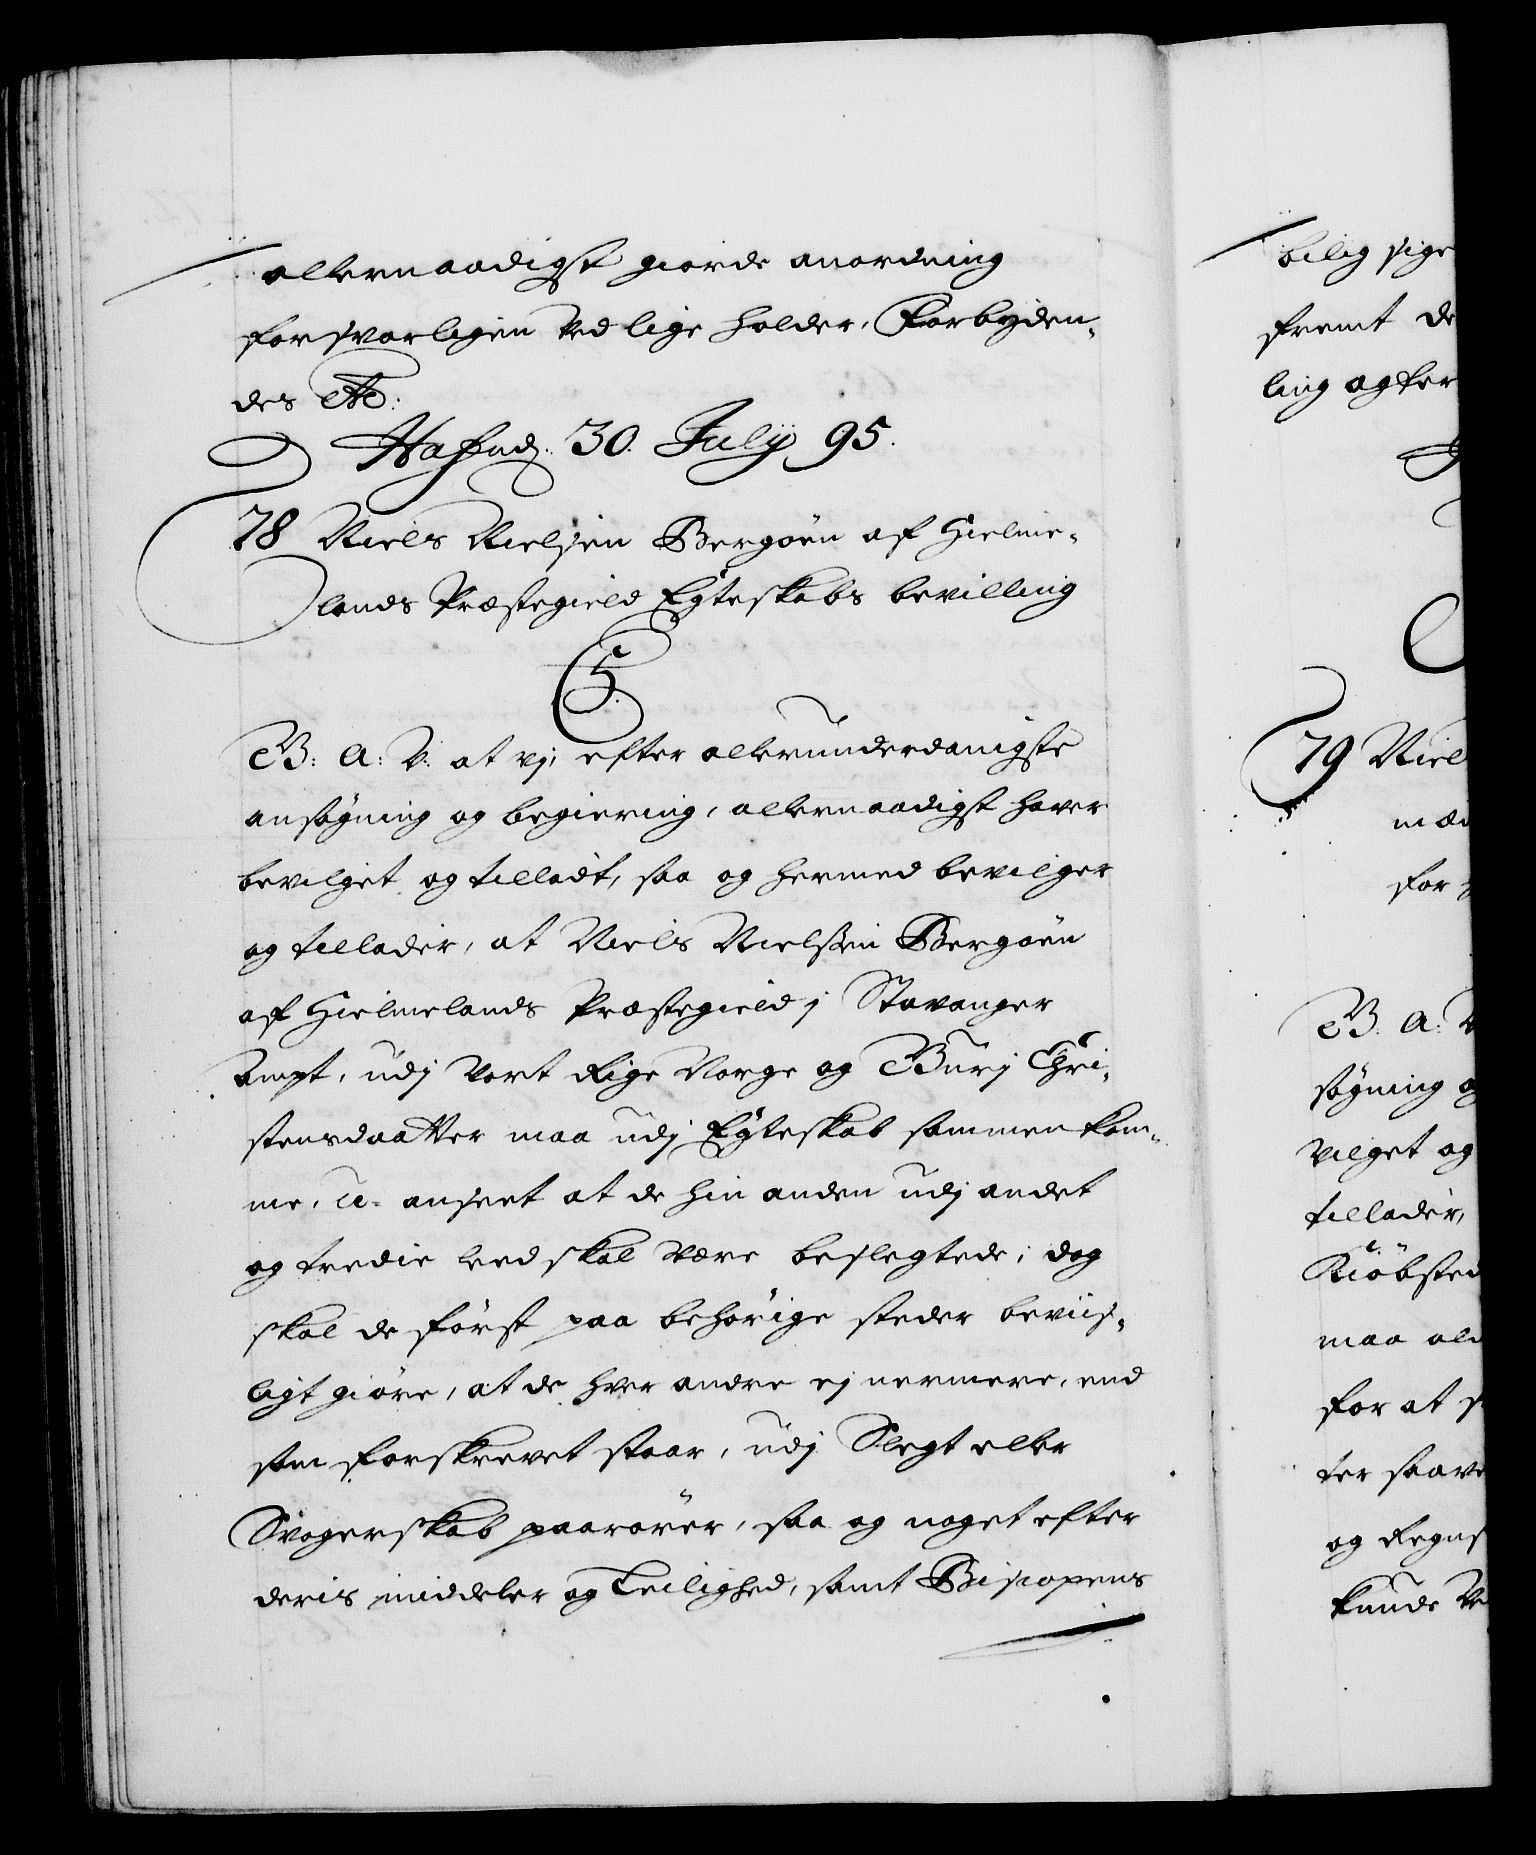 allernaadigst giorde anordning
forsvarligen ved lige holder, Forbyden-
des etc:
Hafnd. 30. July 95.
78 Niels Nielsen Bergöen af Hielme-
lands Præstegield Egteskabs bevilling
C5.
B: A: V: at vj, efter allerunderdanigste
ansøgning og begiering, allernaadigst haver
bevilget og tilladt, saa og hermed bevilger
og tillader, at Niels Nielssen Bergöen
af Hielmelands Præstegield j Stavanger
Ampt, udj vort Rige Norge og Burj Chri-
stensdaatter maa udj Egteskab sammen kom-
me, u-anseet at de hin anden udj andet
og tredie leed skal være beslegtede; dog
skal de först paa behörige steder beviis-
ligt giöre, at de hver andre ej nermere, end
som forskrevet staar, udj Slegt eller
Svogerskab paarörer, saa og noget efter
deris middeler og Leilighed, samt Biscopens
bilig sige
fremt de
ling agter
79 Niel
for
B: A: V
søgning og
vilget og
tillader,
Kiöbsted
maa al
for at
ter saave
og Regns
kunde